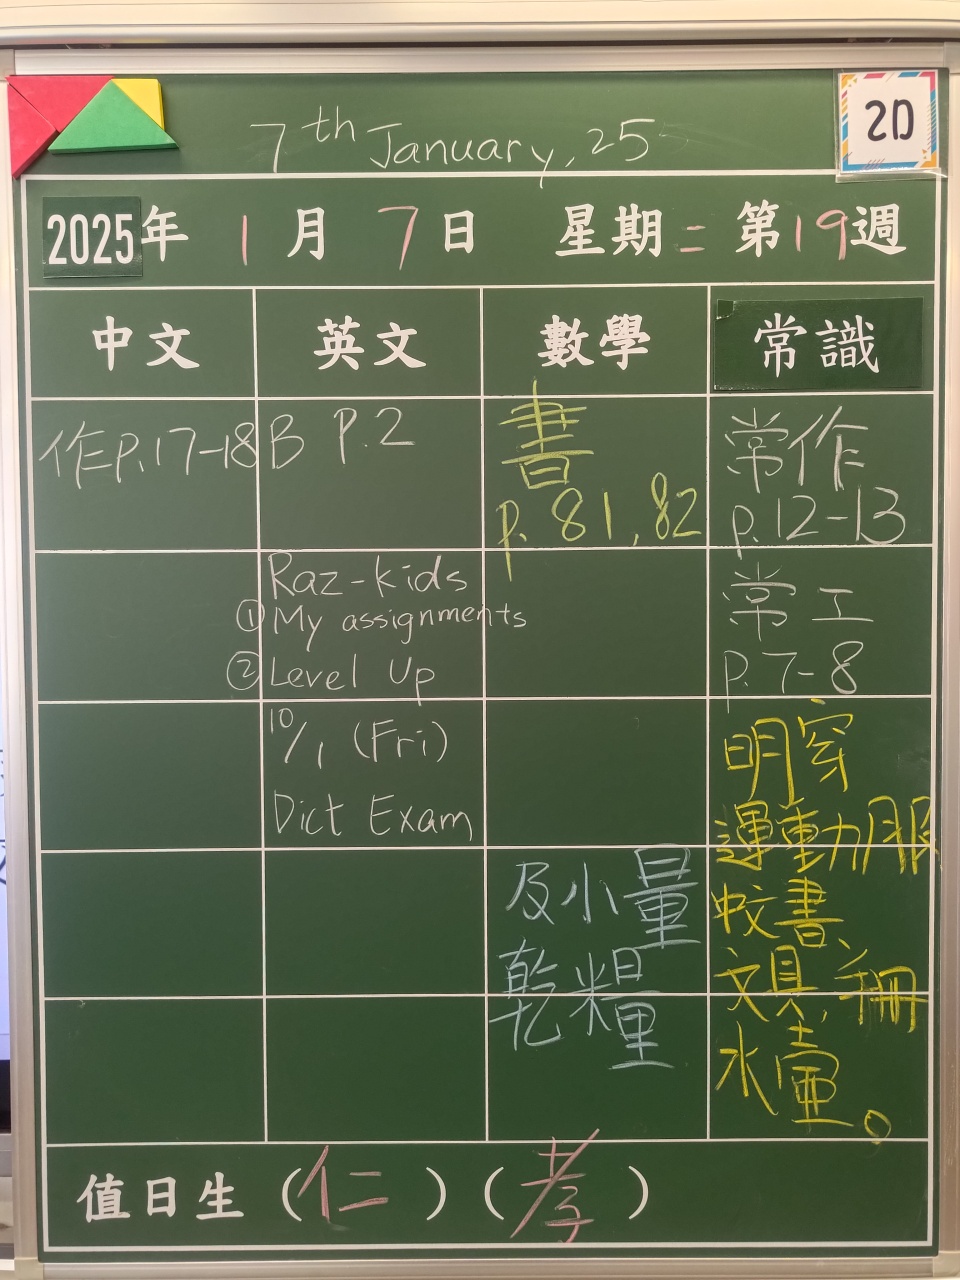 7th January, 25
2D
2025年 1月 7日 星期二 第19週
中文 英文 數學 常識
作P.17-18
B P.2
書
p. 81, 82
常作
p.12-13
Raz-kids
① My assignments
② Level Up
常工
p.7-8
10/1 (Fri)
Dict Exam
明穿
運動服
帶書、
文具、手冊
水壺。
及小量
乾糧
值日生 (仁) (孝)